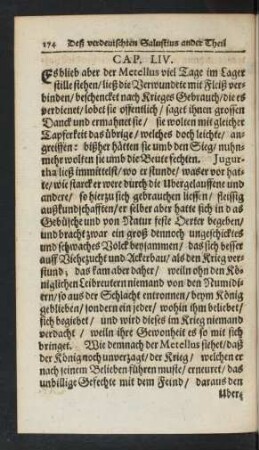 174 Deß verdeutschten Salustius ander Theil
CAP. LIV.
Es blieb aber der Metellus viel Tage im Lager
stille stehen/ ließ die Verwundete mit Fleiß ver-
binden/ beschencket nach Krieges Gebrauch/ die es
verdienet/ lobet sie offentlich/ saget ihnen grossen
Danck und ermahnet sie/ sie wolten mit gleicher
Tapferkeit das übrige/ welches doch leichte/ an-
greissen: bißher hätten sie umb den Sieg/ nuhn-
mehr wolten sie umb die Beute fechten. Jugur-
tha ließ immittelst/ wo er stunde/ was er vor hat-
te/ wie starck er were durch die Ubergelauffene und
andere/ so hierzu sich gebrauchen liessen/ fleissig
außkundschafften/ er selber aber hatte sich in das
Gebüsche und von Natur feste Oerter begeben/
und bracht zwar ein groß dennoch ungeschicktes
und schwaches Volck beysammen/ das sich besser
auff Viehezucht und Ackerbau/ als den Krieg ver-
stund; das kam aber daher/ weiln ohn den Kö-
niglichen Leibreutern niemand von den Numidi-
ern/ so aus der Schlacht entronnen/ beym König
geblieben/ sondern ein jeder/ wohin ihm beliebet/
sich begiebet/ und wird dieses im Krieg niemand
verdacht/ weiln ihre Gewonheit es so mit sich
bringet. Wie demnach der Metellus siehet/ daß
der König noch unverzagt/ der Krieg/ welchen er
nach jeinem Belieben führen muste/ erneuret/ das
unbillige Gefechte mit dem Feind/ daraus den
Uber-